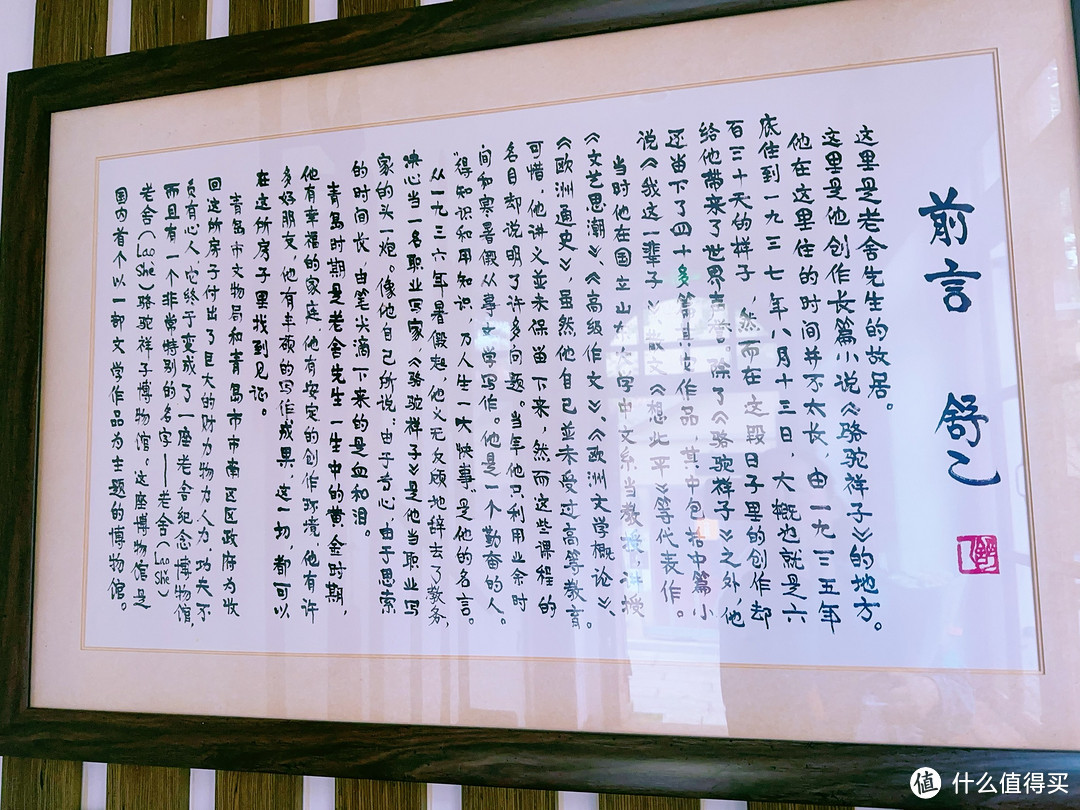 前言 舒乙
这里是老舍先生的故居。
这里是他创作长篇小说《骆驼祥子》的地方。
他在这里住的时间并不太长，由一九三五年
底住到一九三七年八月十三日，大概也就是六
百三十天的样子，然而在这段日子里的创作却
给他带来了世界声誉。除了《骆驼祥子》之外他
还留下了四十多篇其它作品，其中包括中篇小
说《我这一辈子》、散文《想北平》等代表作。
当时他在国立山东大学中文系当教授，讲授
《文艺思潮》、《高级作文》、《欧洲文学概论》、
《欧洲通史》虽然他自己並未受过高等教育。
可惜，他讲义並未保留下来，然而这些课程的
名目却说明了许多问题。当年他只利用业余时
间和寒暑假从事文学写作。他是一个勤奋的人。
"得知识和用知识，乃人生一大快事"是他的名言。
从一九三六年暑假起，他义无反顾地辞去了教务，
决心当一名职业写家《骆驼祥子》是他当职业写
家的头一炮。像他自己所说：由于专心，由于思索
的时间长，由笔尖滴下来的是血和泪。
青岛时期是老舍先生一生中的黄金时期，
他有幸福的家庭，他有安定的创作环境，他有许
多好朋友，他有丰硕的写作成果，这一切，都可以
在这所房子里找到见证。
青岛市文物局和青岛市市南区区政府为收
回这所房子付出了巨大的财力物力人力，功夫不
负有心人，它终于变成了一座老舍纪念博物馆，
而且有一个非常特别的名字——老舍（Lao She）
老舍（Lao She）骆驼祥子博物馆。这座博物馆是
国内首个以一部文学作品为主题的博物馆。
值 什么值得买